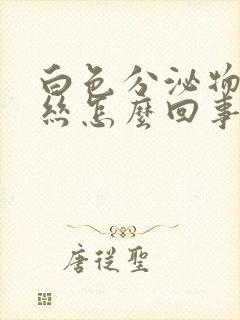 白色分泌物
絲怎麼回事
唐從聖